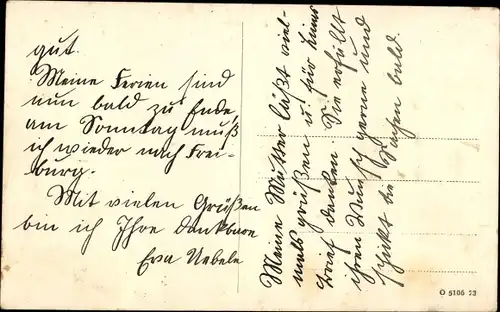 gut.
Meine Ferien sind
nun bald zu Ende,
am Sonntag muß
ich wieder nach Frei-
burg.
Mit vielen Grüßen
bin ich Ihre dankbare
Eva Uebele
Meine Mutter läßt viel-
mals grüßen u. für Ihren
Brief danken. Sie erfüllt
ihren Wunsch gerne und
schickt die Sachen bald.
O 5106 23